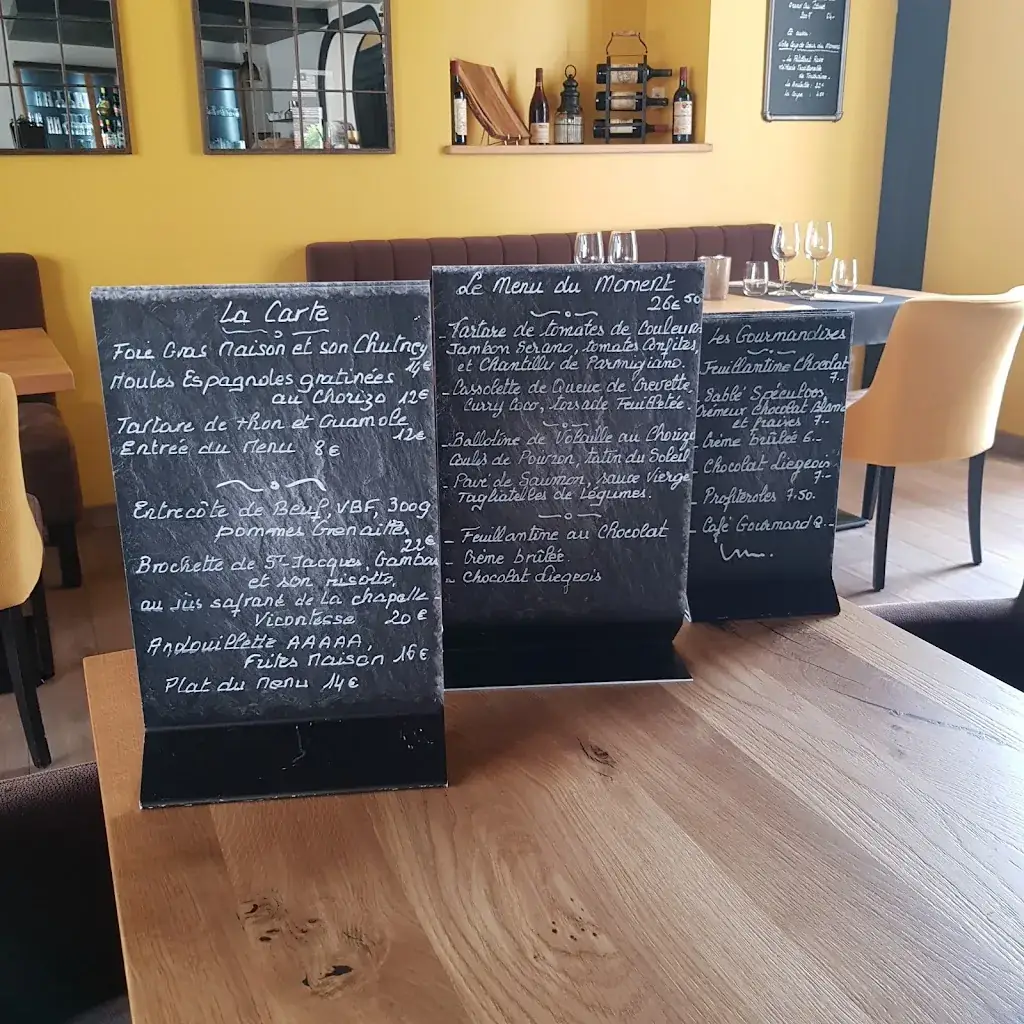 La Carte
Foie Gras Maison et son Chutney
14€
Moules Espagnoles gratinées
au Chorizo 12€
Tartare de thon et Guamole
12€
Entrée du Menu 8€
Entrecôte de Beuf, VBF, 300g
pommes Grenailles
22€
Brochette de St-Jacques, Gambas
et son risotto,
au jus safrané de La chapelle-
Vicontesse 20€
Andouillette AAAAA,
Frites Maison 16€
Plat du Menu 14€
Le Menu du Moment
26€50
- Tartare de tomates de Couleurs
Jambon Serano, tomates Confites,
et Chantilly de Parmigiano.
- Cassolette de Queue de Crevette,
Curry Coco, torsade Feuilletée.
- Ballotine de Volaille au Chorizo
Coulis de Poivron, tatin du Soleil
- Pavé de Saumon, sauce Vierge
Tagliatelles de Légumes.
- Feuillantine au Chocolat
- Crème brûlée
- Chocolat Liegeois
Les Gourmandises
- Feuillantine Chocolat
7.-
- Sablé Spéculoos,
Crémeux Chocolat Blanc
et fraises 7.-
- Crème brûlée 6.-
- Chocolat Liegeois
7.-
- Profiteroles 7.50.
- Café Gourmand 8.-
Et aussi :